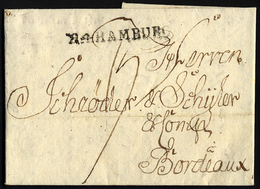 R4HAMBURG
Herren
Schröder & Schÿler
& Comp
Bordeaux